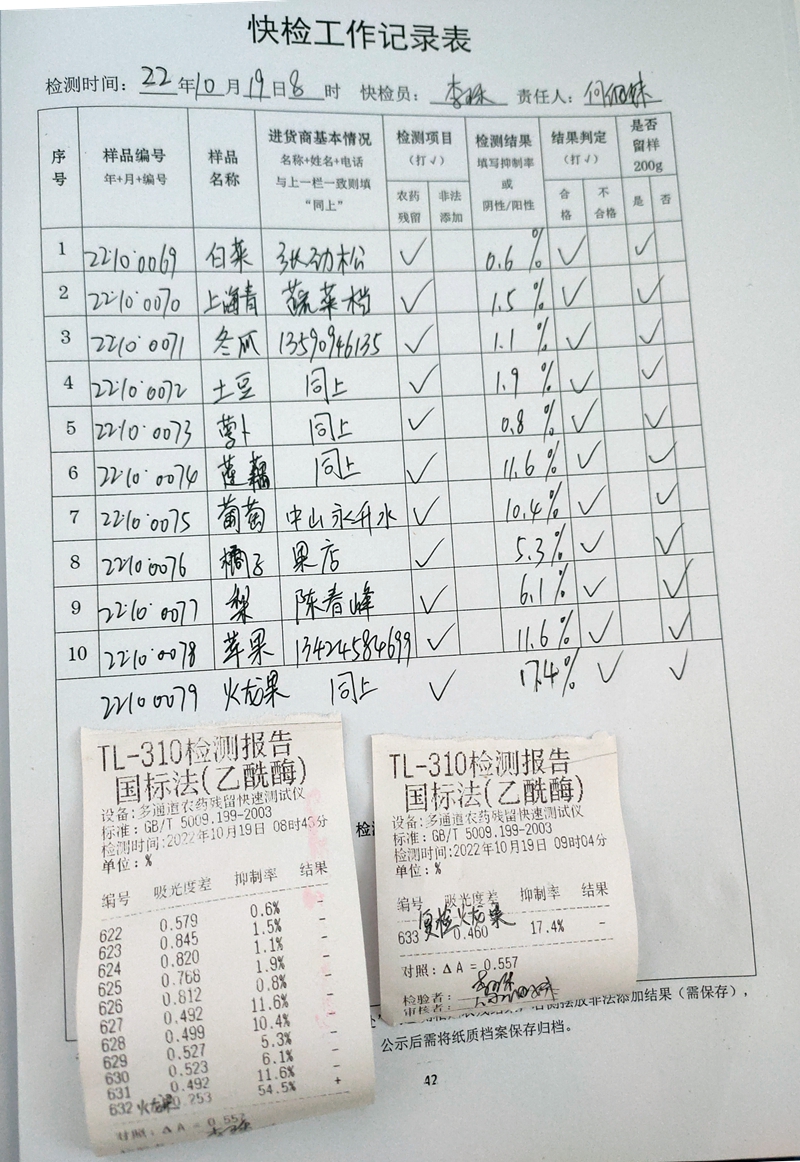 快检工作记录表
检测时间: 22 年 10 月 19 日 8 时 快检员: 责任人:
序号 样品编号 年+月+编号 样品名称 进货商基本情况 名称+姓名+电话 与上一栏一致则填 “同上” 检测项目 (打√) 农药残留 非法添加 检测结果 填写抑制率 或 阴性/阳性 结果判定 (打√) 合格 不合格 是否留样 200g 是 否
1 22·10·0069 白菜 张劲松 ✓ 0.6 % ✓ ✓
2 22·10·0070 上海青 蔬菜档 ✓ 1.5 % ✓ ✓
3 22·10·0071 冬瓜 13590946135 ✓ 1.1 % ✓ ✓
4 22·10·0072 土豆 同上 ✓ 1.9 % ✓ ✓
5 22·10·0073 萝卜 同上 ✓ 0.8 % ✓ ✓
6 22·10·0074 莲藕 同上 ✓ 11.6 % ✓ ✓
7 22·10·0075 葡萄 中山永升水 ✓ 10.4 % ✓ ✓
8 22·10·0076 橘子 果店 ✓ 5.3 % ✓ ✓
9 22·10·0077 梨 陈春峰 ✓ 6.1 % ✓ ✓
10 22·10·0078 苹果 13424584699 ✓ 11.6 % ✓ ✓
22100079 火龙果 同上 ✓ 17.4% ✓ ✓
TL-310检测报告
国标法(乙酰酶)
设备:多通道农药残留快速测试仪
标准: GB/T 5009.199-2003
检测时间:2022年10月19日 08时43分
单位: %
编号 吸光度差 抑制率 结果
622 0.579 0.6% -
623 0.845 1.5% -
624 0.820 1.1% -
625 0.768 1.9% -
626 0.812 0.8% -
627 0.492 11.6% -
628 0.499 10.4% -
629 0.527 5.3% -
630 0.523 6.1% -
631 0.492 11.6% -
632 火龙果 0.253 54.5% +
对照: Δ A = 0.557
TL-310检测报告
国标法(乙酰酶)
设备:多通道农药残留快速测试仪
标准: GB/T 5009.199-2003
检测时间:2022年10月19日 09时04分
单位: %
编号 吸光度差 抑制率 结果
复检火龙果
633 0.460 17.4% -
对照: Δ A = 0.557
检验者:
审核者:
非法添加结果(需保存),
公示后需将纸质档案保存归档。
42